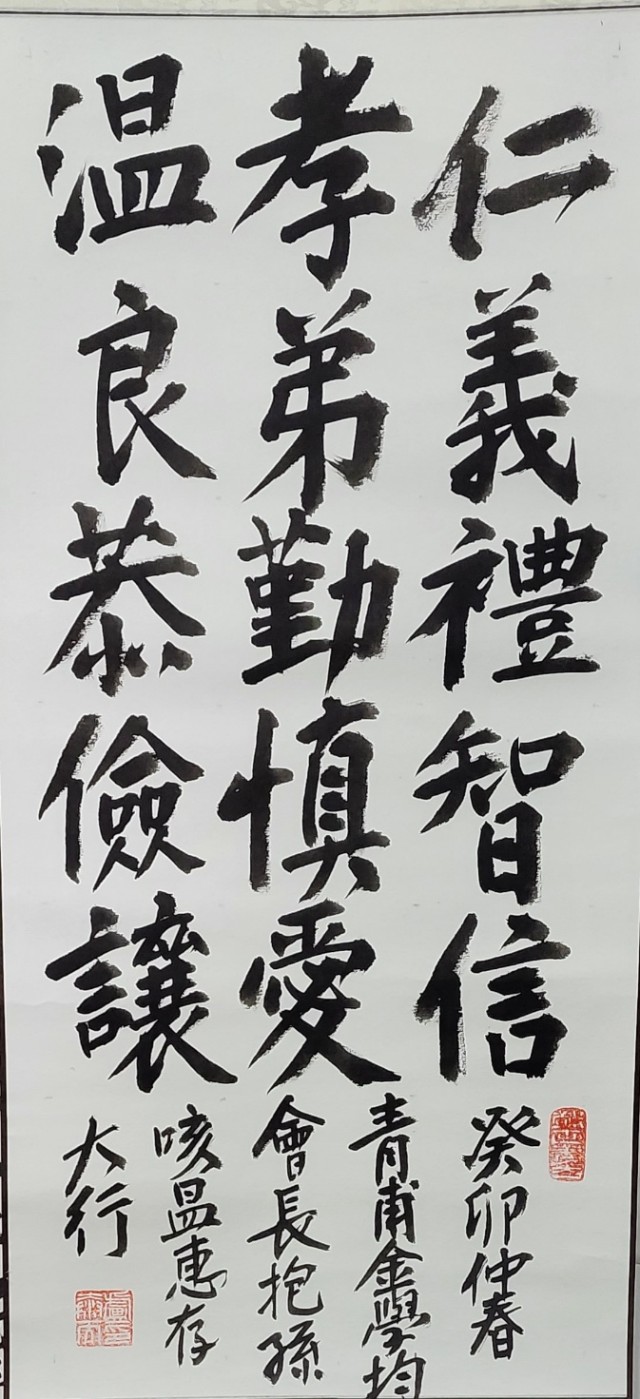 仁義禮智信
孝弟勤慎愛
温良恭儉讓
癸卯仲春
青甫金學均
會長抱孫
咳昷惠存
大行